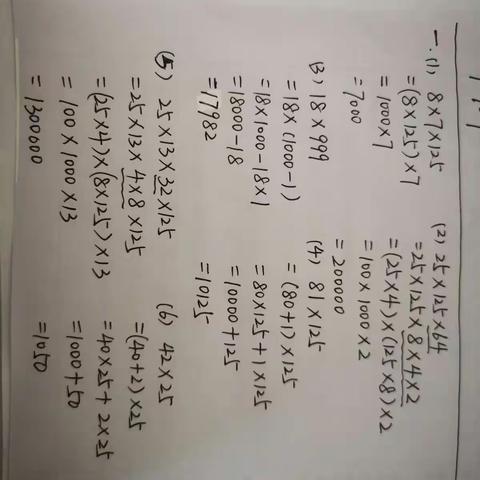 一.(1) 8×7×125
=(8×125)×7
=1000×7
=7000
(2) 25×125×64
=25×125×8×4×2
=(25×4)×(125×8)×2
=100×1000×2
=200000
(3) 18×999
=18×(1000-1)
=18×1000-18×1
=18000-18
=17982
(4) 81×125
=(80+1)×125
=80×125+1×125
=10000+125
=10125
(5) 25×13×32×125
=25×13×4×8×125
=(25×4)×(8×125)×13
=100×1000×13
=1300000
(6) 42×25
=(40+2)×25
=40×25+2×25
=1000+50
=1050